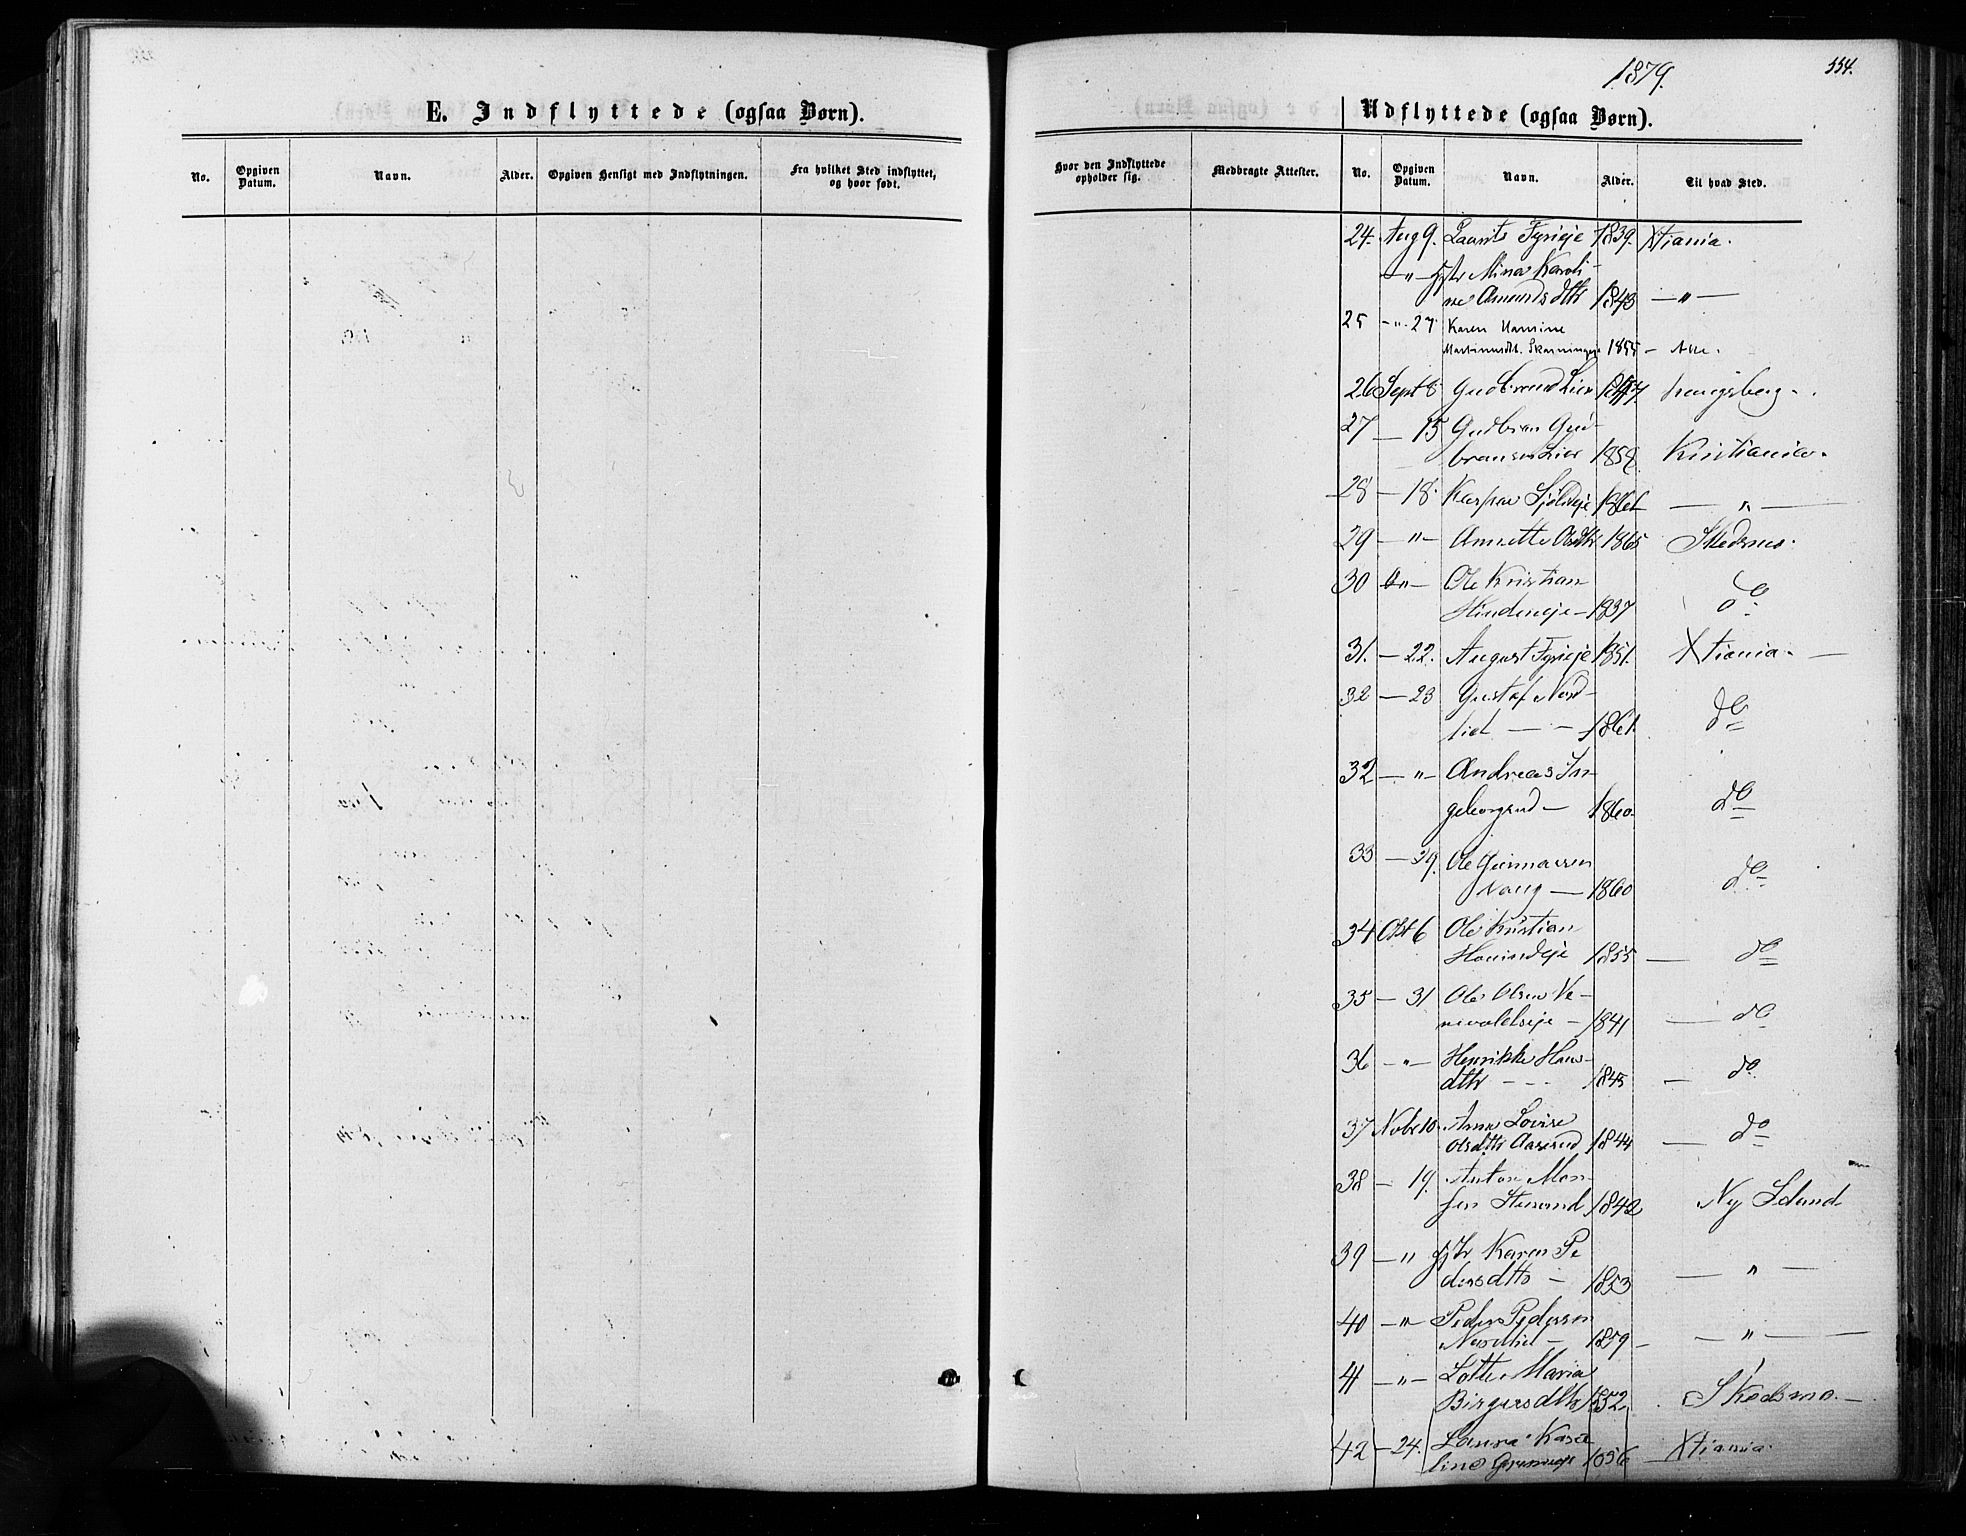 E. Indflyttede (ogsaa Børn).
No.
Opgiven Datum.
Navn.
Alder.
Opgiven Hensigt med Indflytningen.
Fra hvilket Sted indflyttet, og hvor født.
1879.
334.
Udflyttede (ogsaa Børn).
Hvor den Indflyttede opholder sig.
Medbragte Attester.
No.
Opgiven Datum.
Navn.
Alder.
Til hvad Sted.
24. Aug 9. Laurits Fyrieje 1839. Xtiania.
— " — Mina Karoli-
ne Amundsdtr 1843 — " —
25 — " 27. Karen
Martinusdt. 1855 —
26 Sept 8 Gudbrand Lier
27 — 15 Gudbran Gud-
bransen Lier 1859. Kristiania.
28 — 18. Kaspar 1861 — " —
29 — " — Annette Olsdtr 1865 Skedsmo.
30 " — Ole Kristian
1837 do
31. — 22. August Fyrieje 1851. Xtiania. —
32 — 23 Gustaf Nord-
lid — — 1861. do
32 — " — Andreas In-
geborgrud — 1860. do
33 — 29. Ole Gunnarsen
Haug — 1860 do
34 Okt 6 Ole Kristian
1855 — do
35 — 31 Ole Olsen Ve-
nevoldseje — 1841 — do
36 — " — Henrikke Hans-
dtr — — 1845 — do
37 Nobr 10. Anna Lovise
Olsdtr Aaserud 1844 — do
38 — 19. Anton
1842
39 — " Karen Pe
dersdtr — 1853 — " —
40 — " Peder Pedersen
Nordlid — 1859 — — " —
41 — " — Lotte Maria
Birgersdtr 1852. Skedsmo. —
42 — 24. Laura Karo
line 1856 Xtiania.